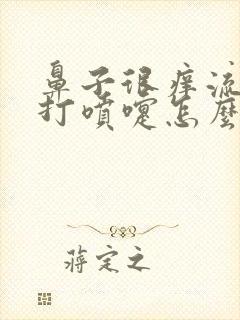 鼻子很痒流
打喷嚏怎麼
蒋定之